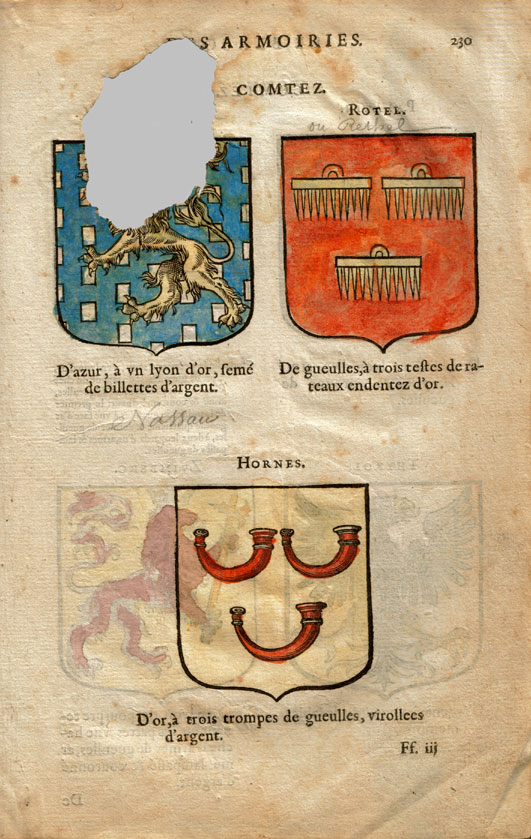 ES ARMOIRIES. 230
COMTEZ.
ROTEL.
ou Rethel
D'azur, à vn lyon d'or, ſemé
de billettes d'argent.
De gueulles, à trois teſtes de ra-
teaux endentez d'or.
Nassau
HORNES.
D'or, à trois trompes de gueulles, virollees
d'argent.
Ff. iij